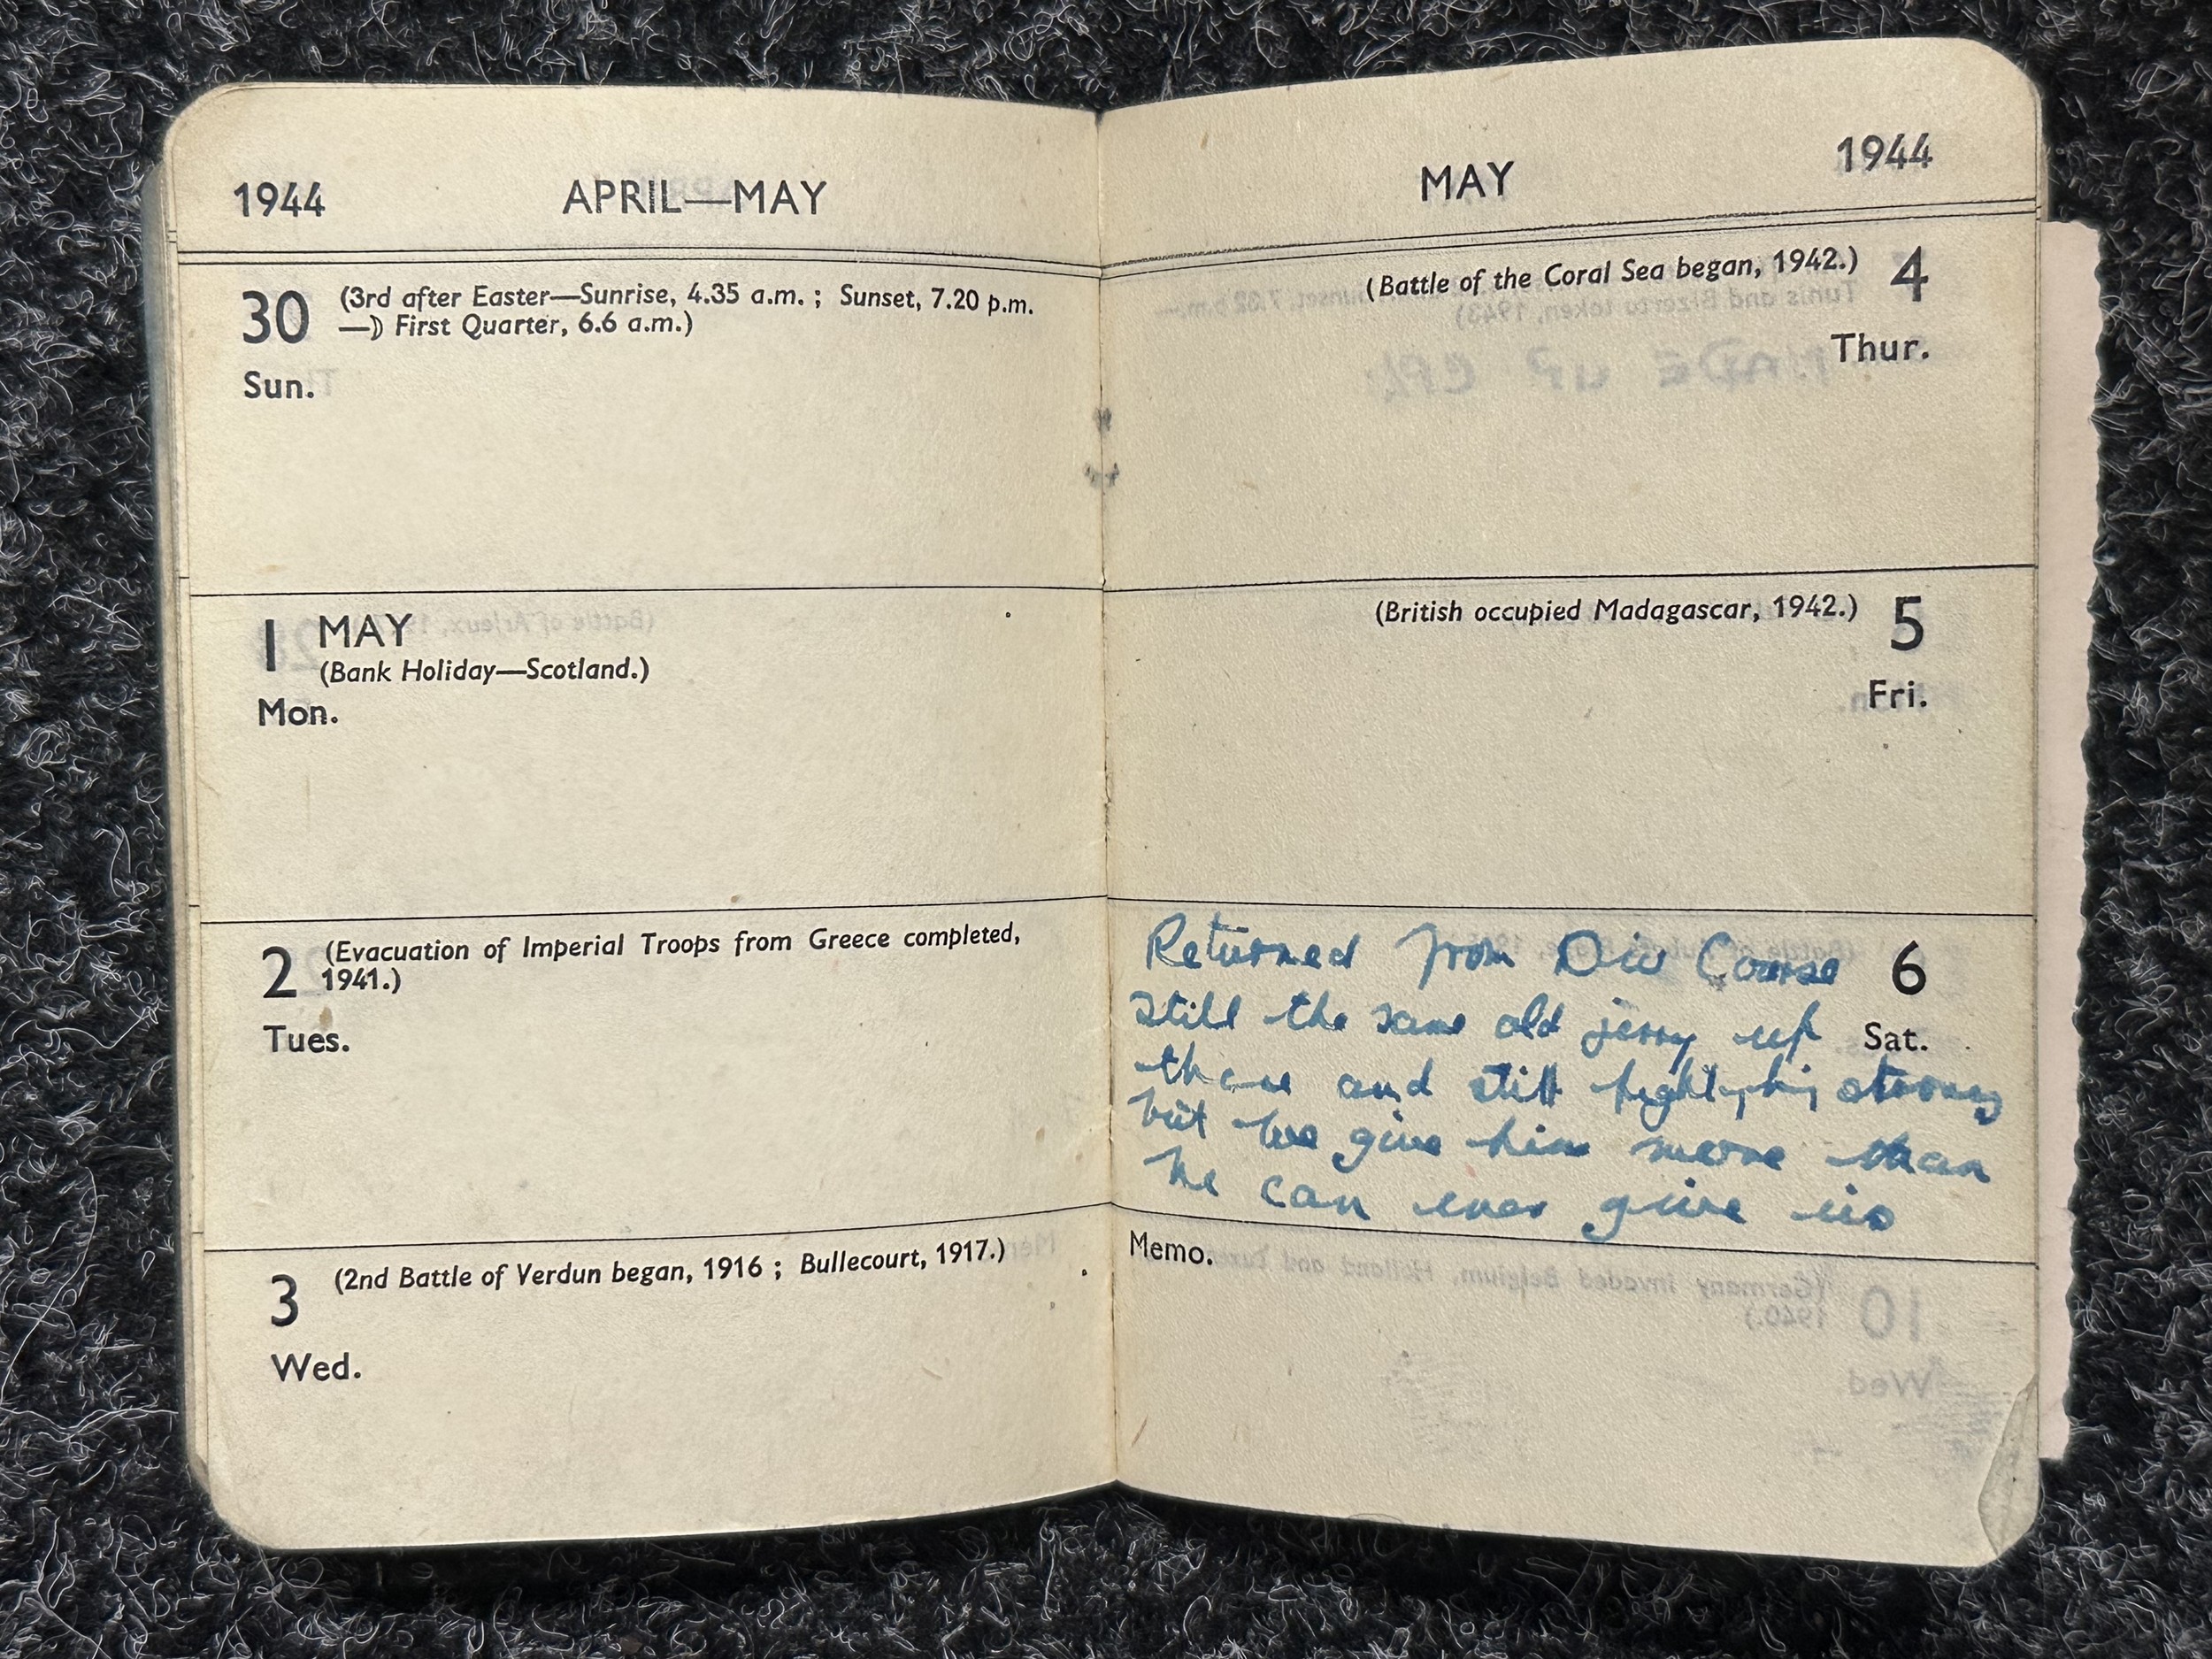 1944 APRIL—MAY
30 (3rd after Easter—Sunrise, 4.35 a.m. ; Sunset, 7.20 p.m.
—☽ First Quarter, 6.6 a.m.)
Sun.
1 MAY
(Bank Holiday—Scotland.)
Mon.
2 (Evacuation of Imperial Troops from Greece completed,
1941.)
Tues.
3 (2nd Battle of Verdun began, 1916 ; Bullecourt, 1917.)
Wed.
MAY 1944
(Battle of the Coral Sea began, 1942.) 4
Thur.
(British occupied Madagascar, 1942.) 5
Fri.
Returned from Div Course 6
still the same old jerry up Sat.
there and still strong
but we give him more than
he can ever give us
Memo.